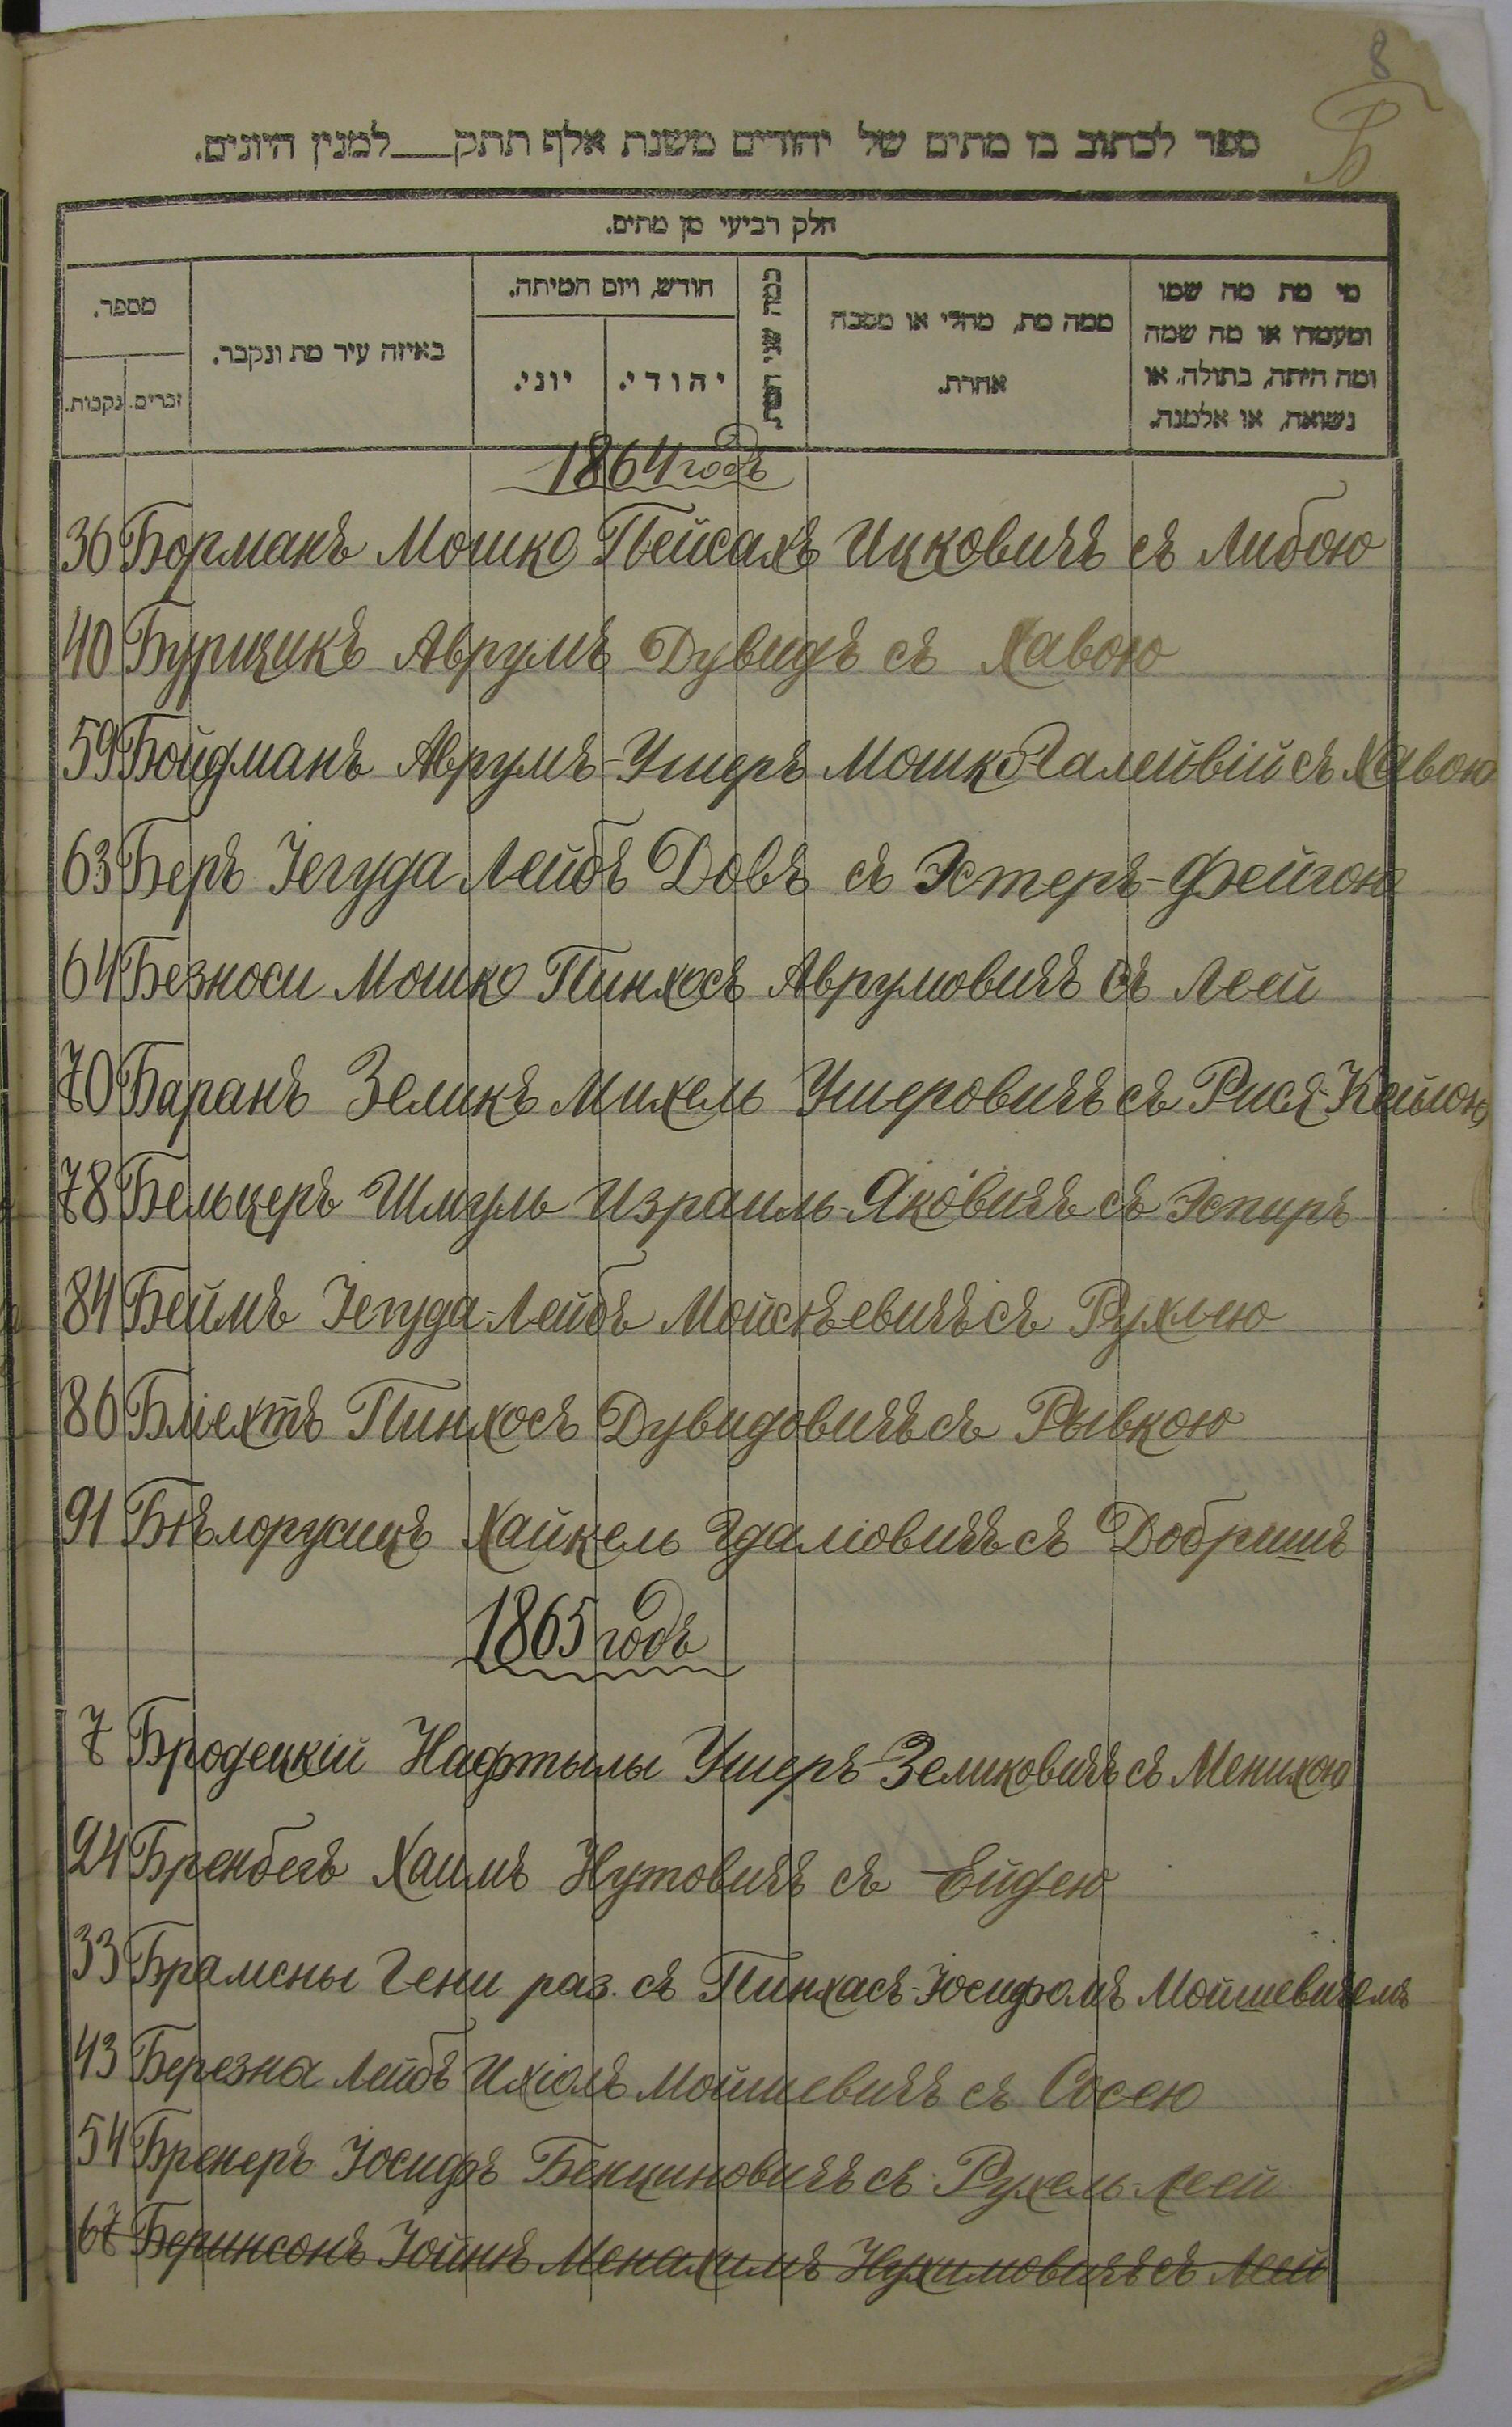 8
Б
ספר לכתוב בו מתים של יהודים משנת אלף תתק___למנין היונים.
חלק רביעי מן מתים.
מי מת מה שמו
ומעמדו או מה שמה
ומה היתה, בתולה, או
נשואה, או אלמנה.
ממה מת, מחלי או מסבה
אחרת.
כמה שני המת.
חודש, ויום המיתה.
יהודי.
יוני.
באיזה עיר מת ונקבר.
מספר.
זכרים.
נקבות.
1864 годъ
36 Борманъ Мошко Пейсахъ Ицковичъ съ Либою
40 Бурщикъ Аврумъ Дувидъ съ Хавою
59 Бойдманъ Аврумъ-Ушеръ Мошко съ Хавою
63 Беръ Іегуда Лейбъ Довъ съ Эстеръ-Фейгою
64 Безноси Мошко Пинхосъ Аврумовичъ съ Леей
70 Баранъ Зеликъ Михель Ушеровичъ съ Рися-Кейлою
78 Бельцеръ Шмуль Израиль-Яковичъ съ Эстиръ
84 Беймъ Іегуда-Лейбъ Мойсѣевичъ съ Рухлею
86 Бліехтъ Пинхосъ Дувидовичъ съ Рывкою
91 Бѣлорусицъ Хайкель Гдаліовичъ съ Добришъ
1865 годъ
7 Бродецкій Нафтылы Ушеръ-Зеликовичъ съ Менихою
24 Бренбегъ Хаимъ Нутовичъ съ Ейдею
33 Брамсны Гени раз. съ Пинхасъ-Іосифомъ Мойшевичемъ
43 Березна Лейбъ Ихіолъ Мойшевичъ съ Сосею
54 Бренеръ Іосифъ Бенциновичъ съ Рухель-Леей
67 Беринсонъ Іойнѣ Менахимъ Нухимовичъ съ Леей